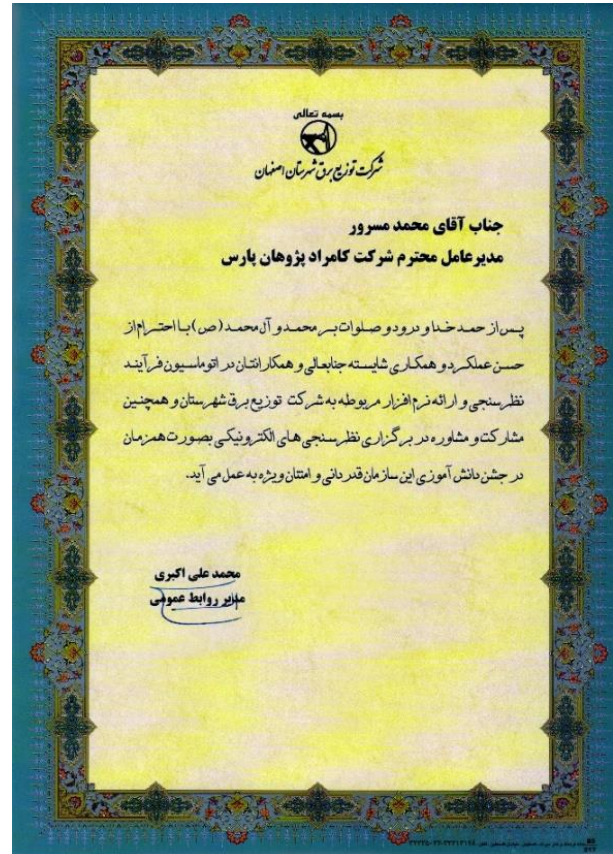 بسمه تعالی
شرکت توزیع برق شهرستان اصفهان
جناب آقای محمد مسرور
مدیرعامل محترم شرکت کامراد پژوهان پارس
پس از حمد خدا و درود و صلوات بر محمد و آل محمد (ص) با احترام از
حسن عملکرد و همکاری شایسته جنابعالی و همکارانتان در اتوماسیون فرآیند
نظرسنجی و ارائه نرم افزار مربوطه به شرکت توزیع برق شهرستان و همچنین
مشارکت و مشاوره در برگزاری نظرسنجی های الکترونیکی بصورت همزمان
در جشن دانش آموزی این سازمان قدردانی و امتنان ویژه به عمل می آید.
محمد علی اکبری
مدیر روابط عمومی